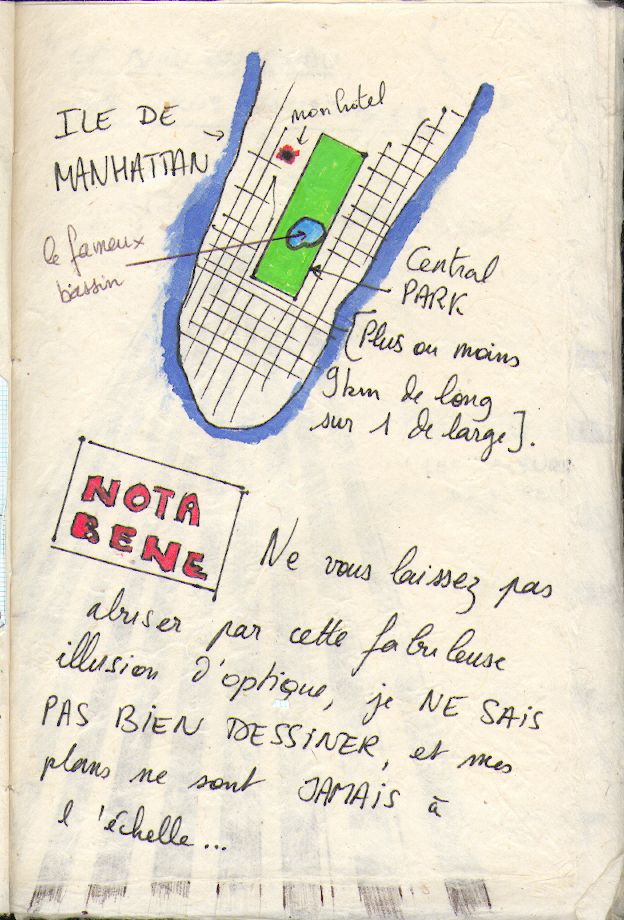 ILE DE
MANHATTAN
mon hotel
le fameux
bassin
Central
PARK
[Plus ou moins
9km de long
sur 1 de large].
NOTA
BENE
Ne vous laissez pas
abuser par cette fabuleuse
illusion d'optique, je NE SAiS
PAS BiEN DESSiNER, et mes
plans ne sont JAMAiS à
l'échelle...